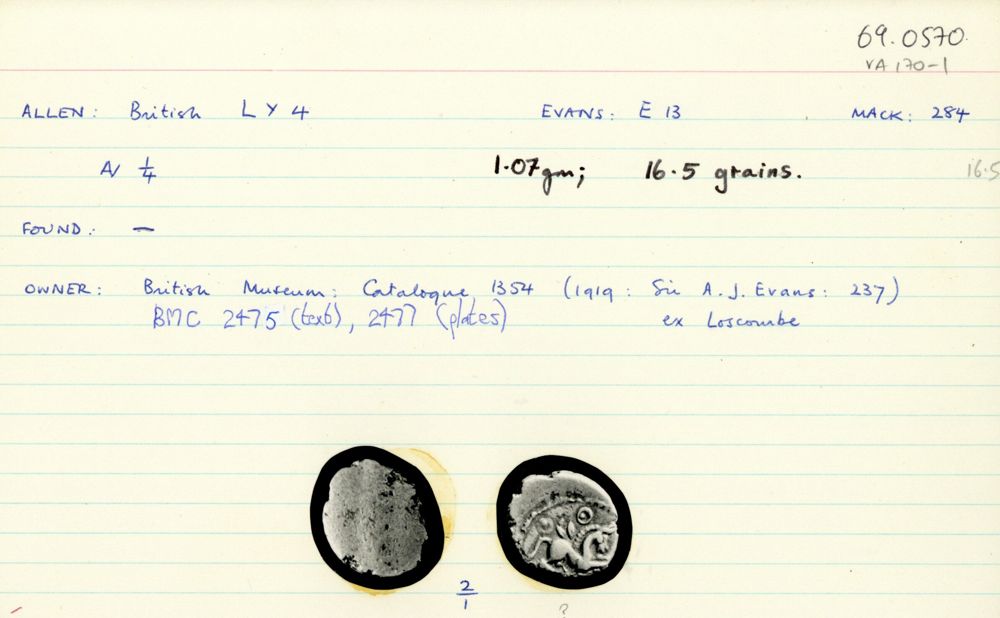 69.0570
VA 170-1
ALLEN: British L Y 4 EVANS: E 13 MACK: 284
AV 1/4 1.07gm; 16.5 grains. 16.5
FOUND: —
OWNER: British Museum: Catalogue 1354 (1919: Sir A. J. Evans: 237)
BMC 2475 (text), 2477 (plates) ex Loscombe
2/1
?